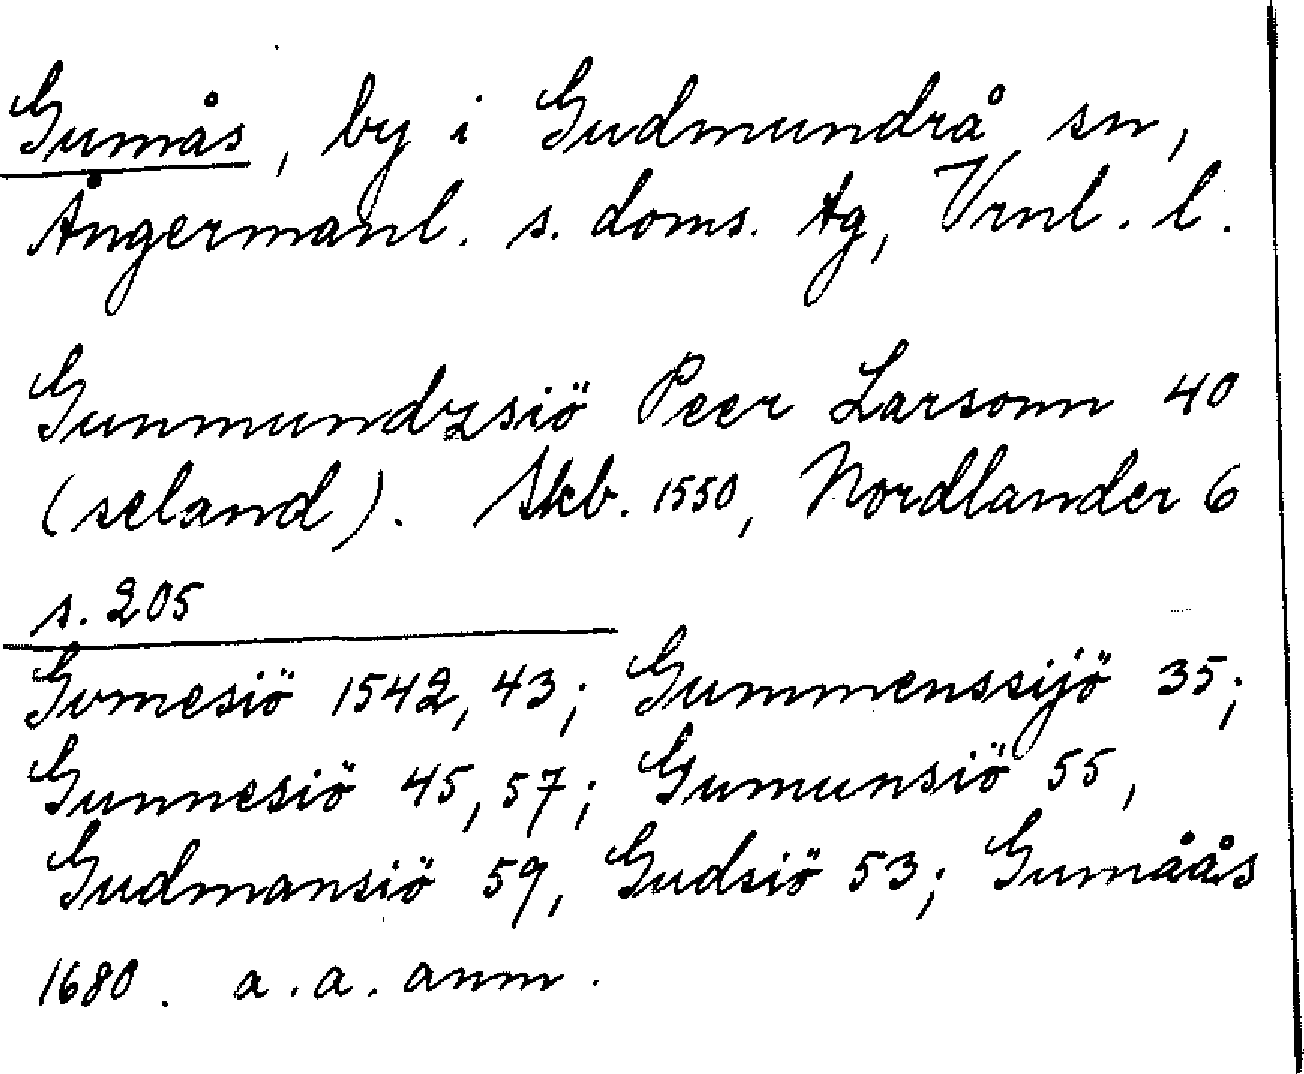 Gumås, by i Gudmundrå sn,
Ångermanl. s. doms. tg, Vrnl. l.
Gunmundzsiö Peer Larsonn 40
(seland). Skb. 1550, Nordlander 6
s. 205
Gvmesiö 1542, 43; Gummenssijö 35;
Gunnesiö 45, 57; Gumunsiö 55,
Gudmansiö 59, Gudsiö 53; Gumåås
1680. a.a. anm.